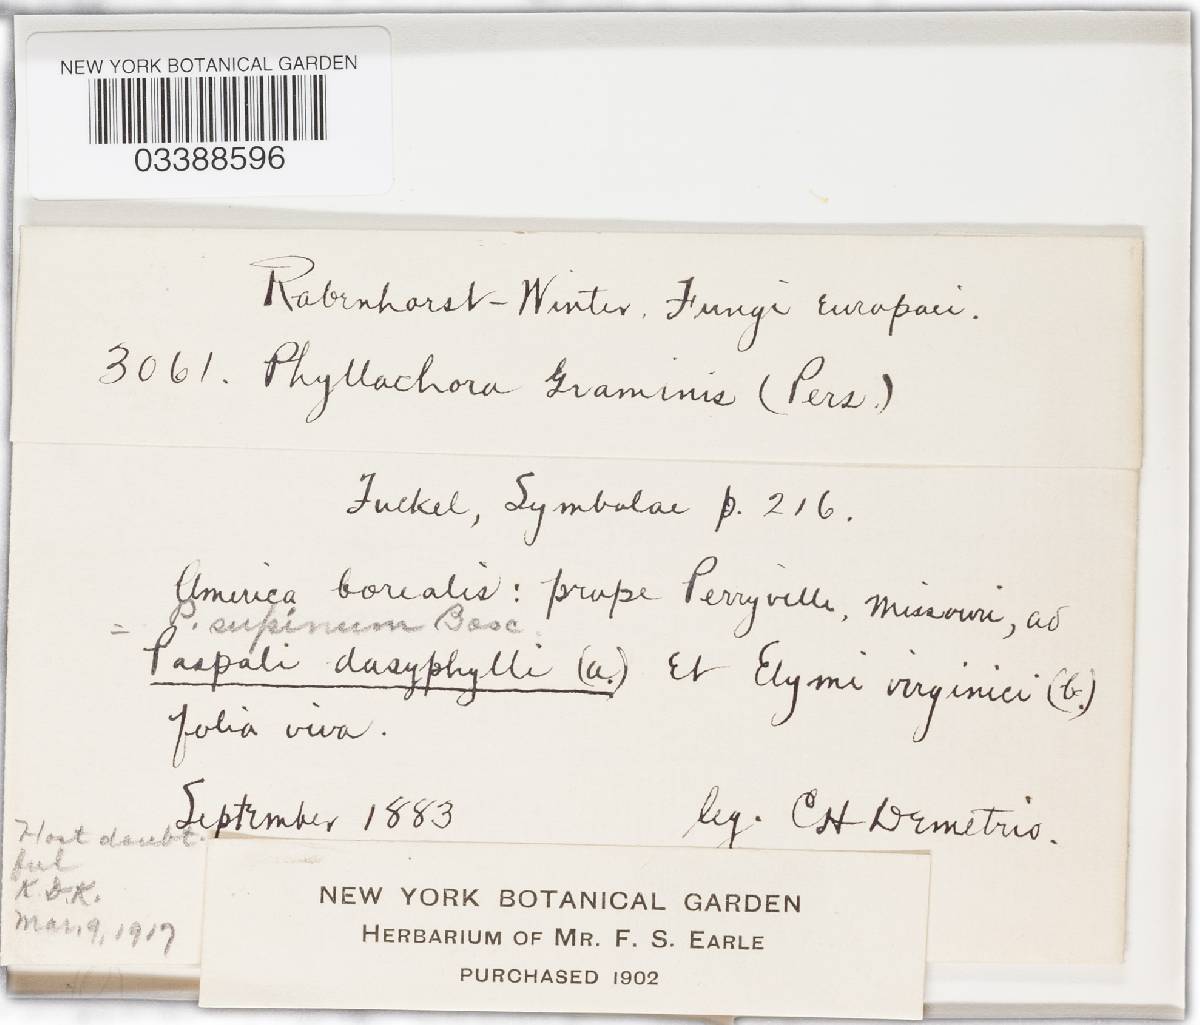 NEW YORK BOTANICAL GARDEN
03388596
Rabenhorst-Winter, Fungi europaei.
3061. Phyllachora Graminis (Pers.)
Fuckel, Symbolae p. 216.
America borealis: prope Perryville, Missouri, ad
= P. supinum Bosc.
Paspali dasyphylli (a.) et Elymi virginici (b.)
folia viva.
September 1883 leg. CH Demetrio.
Host doubt-
ful
K.D.K.
Mar. 9, 1917
NEW YORK BOTANICAL GARDEN
HERBARIUM OF MR. F. S. EARLE
PURCHASED 1902